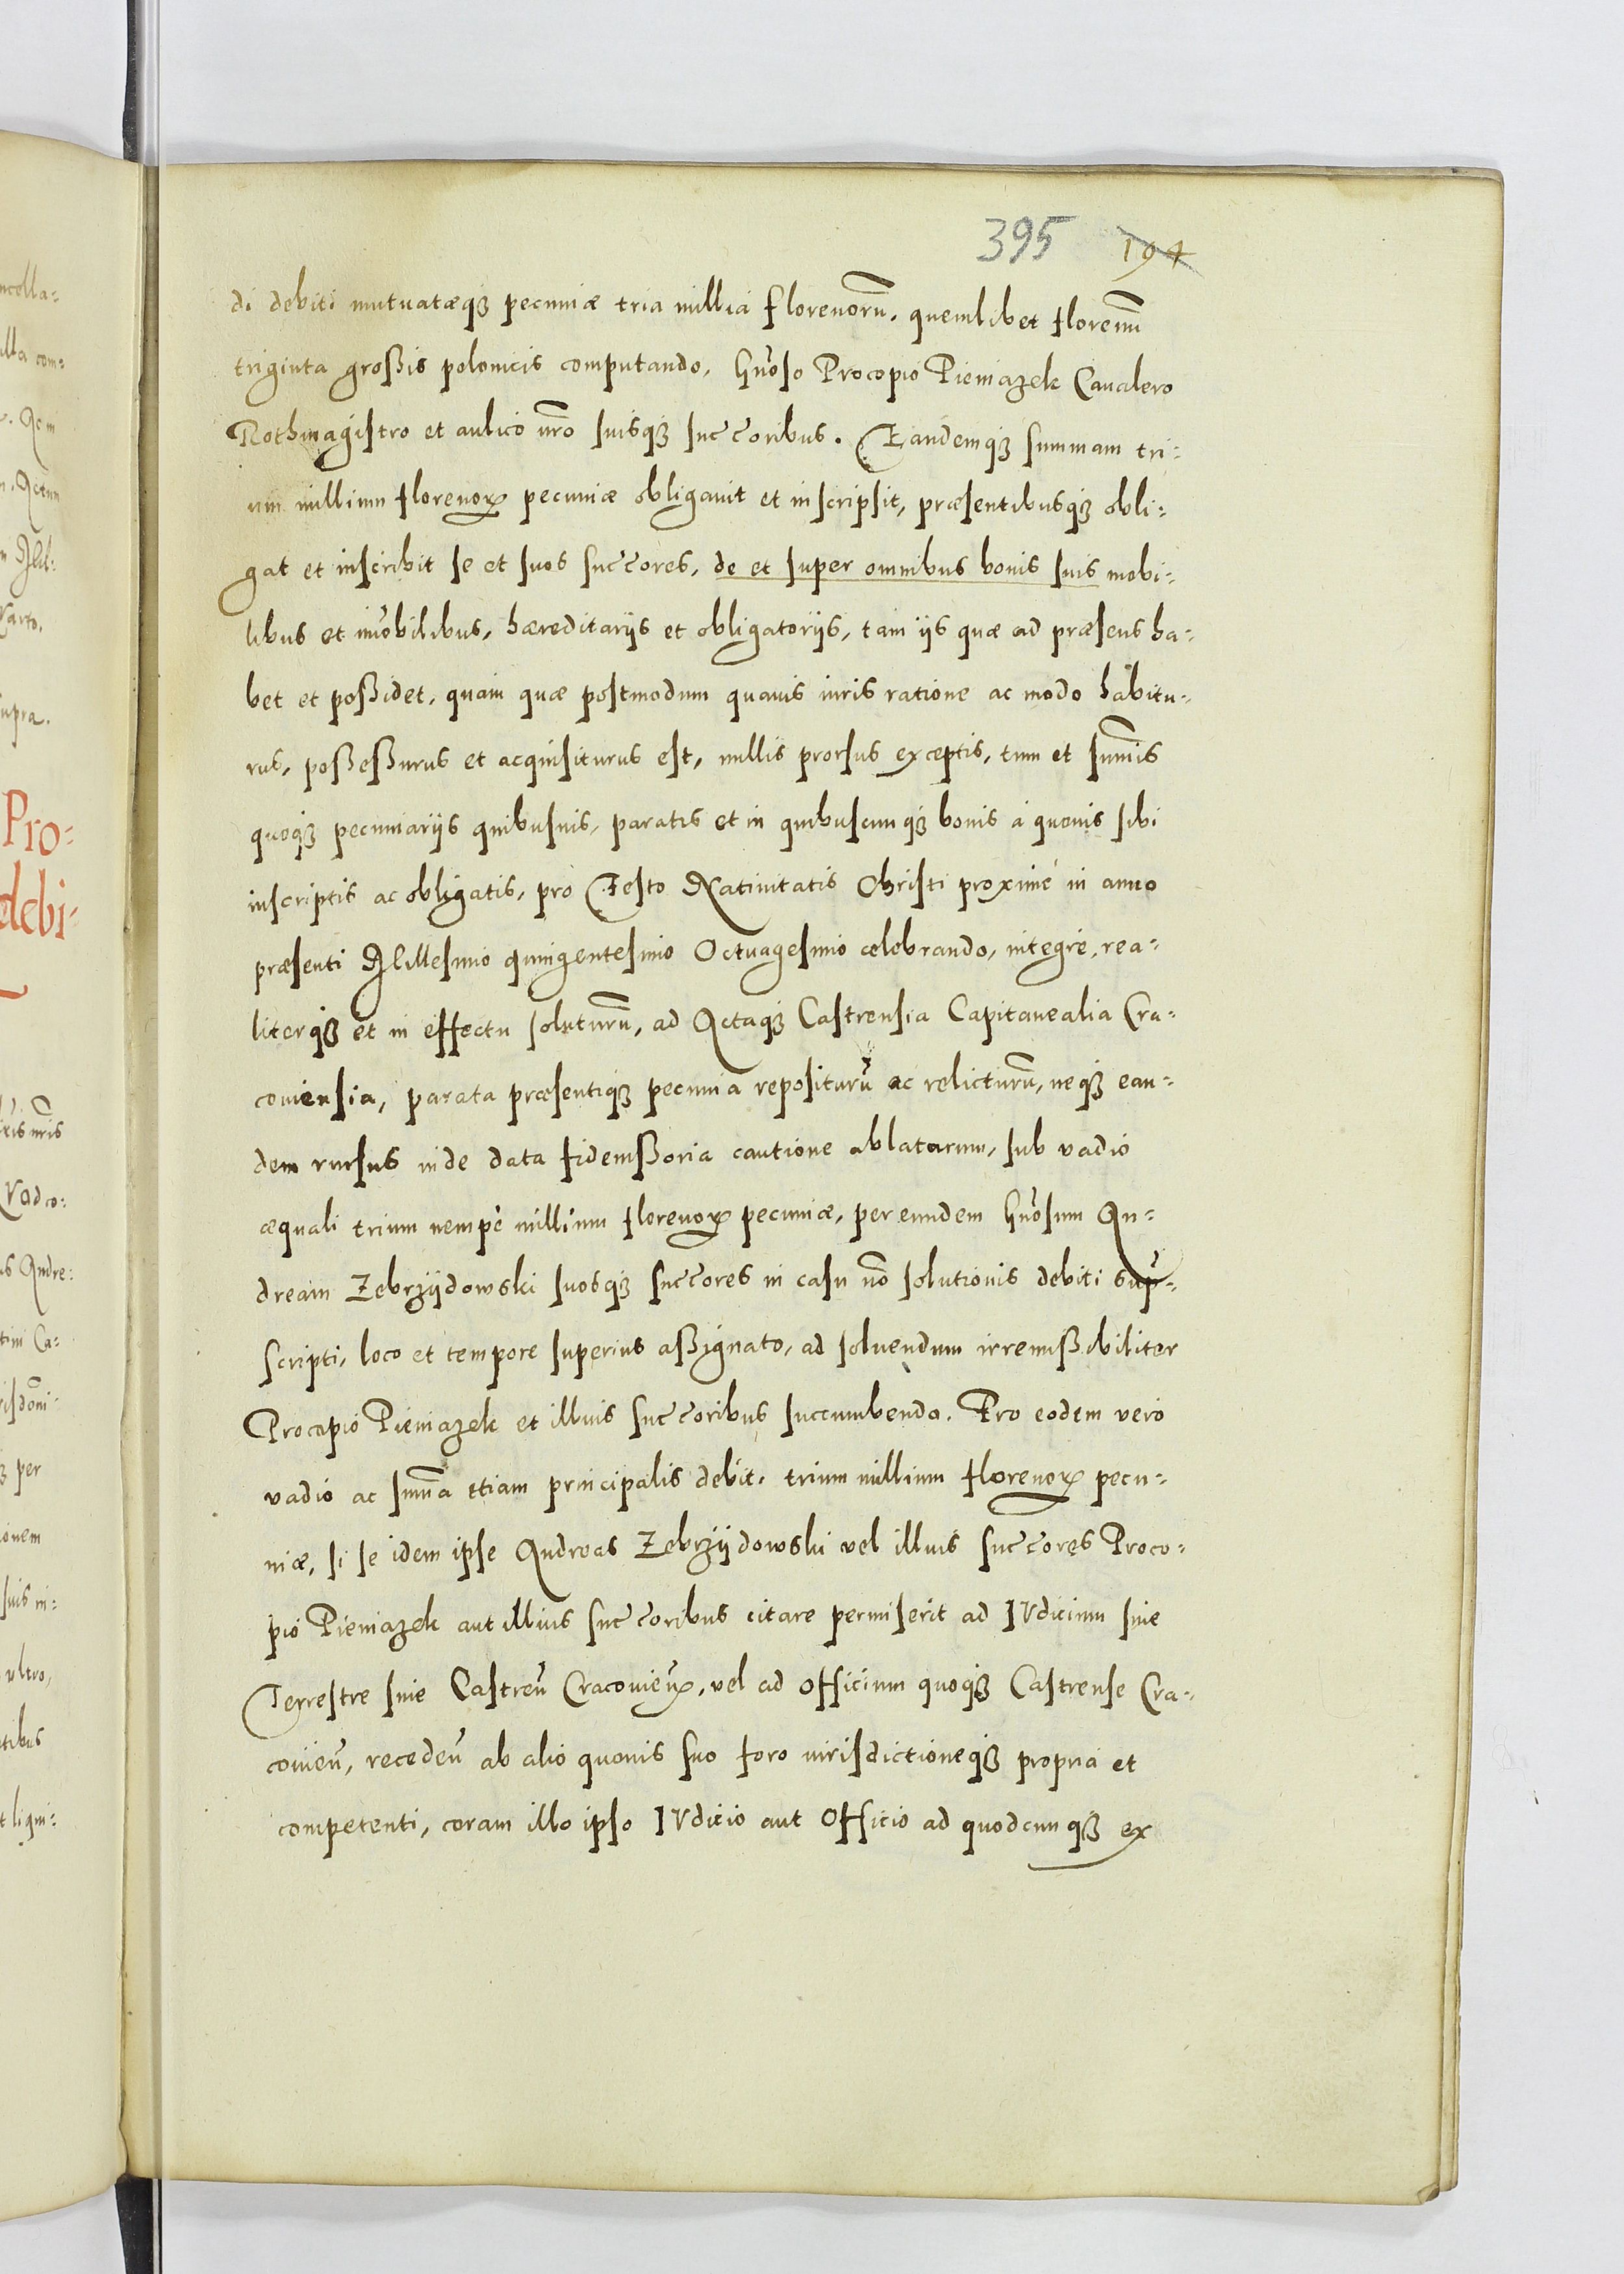 395 194
di debiti mutuatæq3 pecuniæ tria millia florenorũ, quemlibet florenũ
triginta großis polonicis computando, Gñoso Procopio Pieniazek Caualero
Rothmagistro et aulico nr̃o suisq3 succoribus. Eandemq3 summam tri-
um millium florenoꝝ pecuniæ obligauit et inscripsit, præsentibusq3 obli-
gat et inscribit se et suos succores, de et super omnibus bonis suis mobi-
libus et im̃obilibus, hæreditarijs et obligatorijs, tam ijs quæ ad præsens ha-
bet et poßidet, quam quæ postmodum quauis iuris ratione ac modo habitu-
rus, poßeßurus et acquisiturus est, nullis prorsus exceptis, tum et sum̃is
quoq3 pecuniarijs quibusuis, paratis et in quibuscunq3 bonis a quouis sibi
inscriptis ac obligatis, pro Festo Natiuitatis Christi proximé in anno
præsenti Millesimo quingentesimo Octuagesimo celebrando, integre, rea-
literq3 et in effectu soluturũ, ad Actaq3 Castrensia Capitanealia Cra-
couiensia, parata præsentiq3 pecunia repositurũ ac relicturũ, neq3 ean-
dem rursus inde data fideiußoria cautione ablaturum, sub vadio
æquali trium nempè millium florenoꝝ pecuniæ, per eundem Gñosum An-
dream Zebrzijdowski suosq3 succores in casu nõ solutionis debiti sup̃-
scripti, loco et tempore superius aßignato, ad soluendum irremißibiliter
Procopio Pieniazek et illius succoribus succumbendo. Pro eodem vero
vadio ac sum̃a etiam principalis debiti trium millium florenoꝝ pecu-
niæ, si se idem ipse Andreas Zebrzijdowski vel illius succores Proco-
pio Pieniazek aut illius succoribus citare permiserit ad IVdicium siue
Terrestre siue Castreñ Cracouieñ, vel ad officium quoq3 Castrense Cra-
couieñ, recedeñ ab alio quouis suo foro iurisdictioneq3 propria et
competenti, coram illo ipso IVdicio aut Officio ad quodcunq3 ex